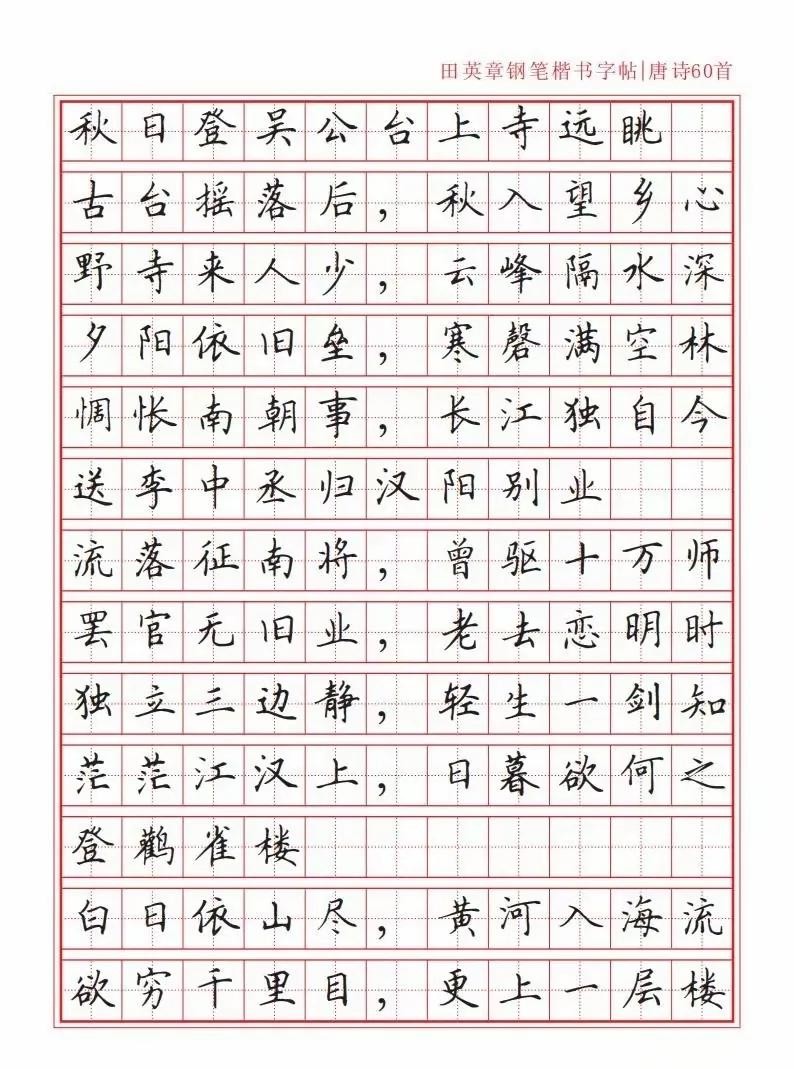 田英章钢笔楷书字帖|唐诗60首
秋日登吴公台上寺远眺
古台摇落后，秋入望乡心
野寺来人少，云峰隔水深
夕阳依旧垒，寒磬满空林
惆怅南朝事，长江独自今
送李中丞归汉阳别业
流落征南将，曾驱十万师
罢官无旧业，老去恋明时
独立三边静，轻生一剑知
茫茫江汉上，日暮欲何之
登鹳雀楼
白日依山尽，黄河入海流
欲穷千里目，更上一层楼